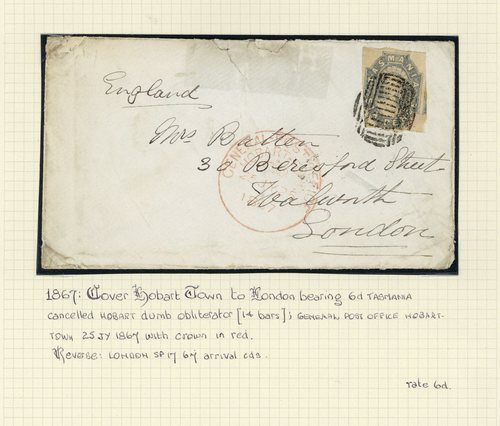 TASMANIA
England
Mrs Batten
30 Beresford Street
Walworth
London
GENERAL POST OFFICE
HOBART
1867: Cover Hobart Town to London bearing 6d TASMANIA
cancelled HOBART dumb obliterator [14 bars]; GENERAL POST OFFICE HOBART-
TOWN 25 JY 1867 with crown in red.
Reverse: LONDON SP 17 67 arrival cds.
rate 6d.